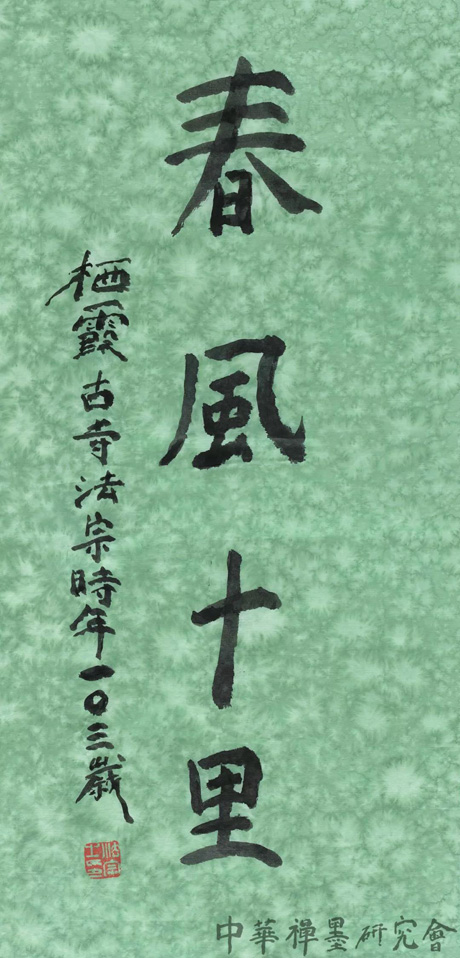 春風十里
栖霞古寺法宗時年一〇三歲
中華禪墨研究會